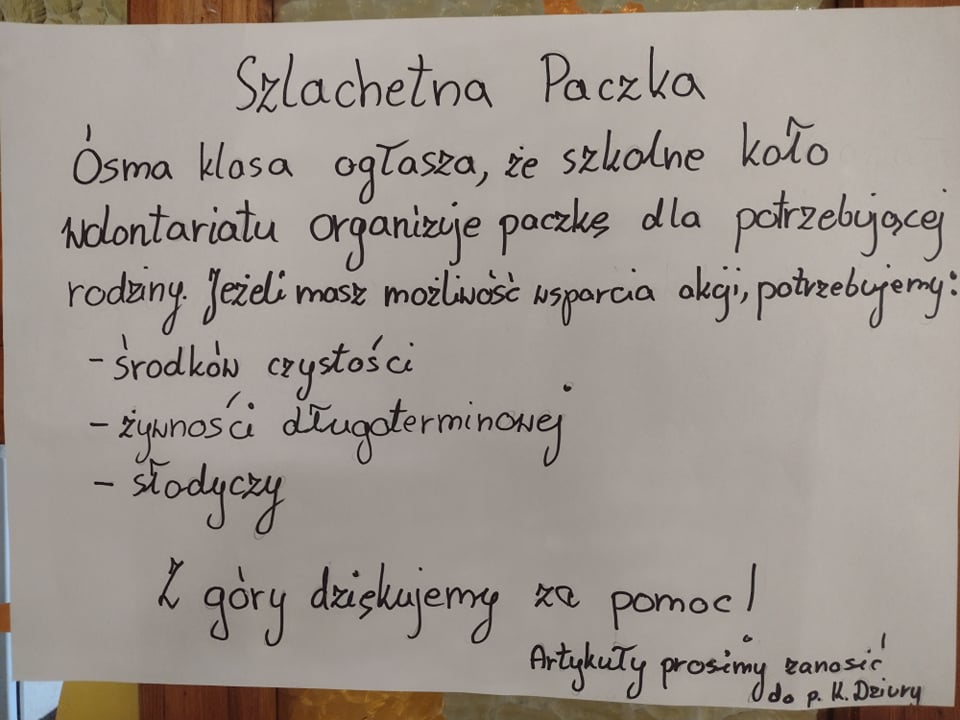 Szlachetna Paczka
Ósma klasa ogłasza, że szkolne koło
wolontariatu organizuje paczkę dla potrzebującej
rodziny. Jeżeli masz możliwość wsparcia akcji, potrzebujemy:
- środków czystości
- żywności długoterminowej
- słodyczy
Z góry dziękujemy za pomoc!
Artykuły prosimy zanosić
do p. K. Dziury